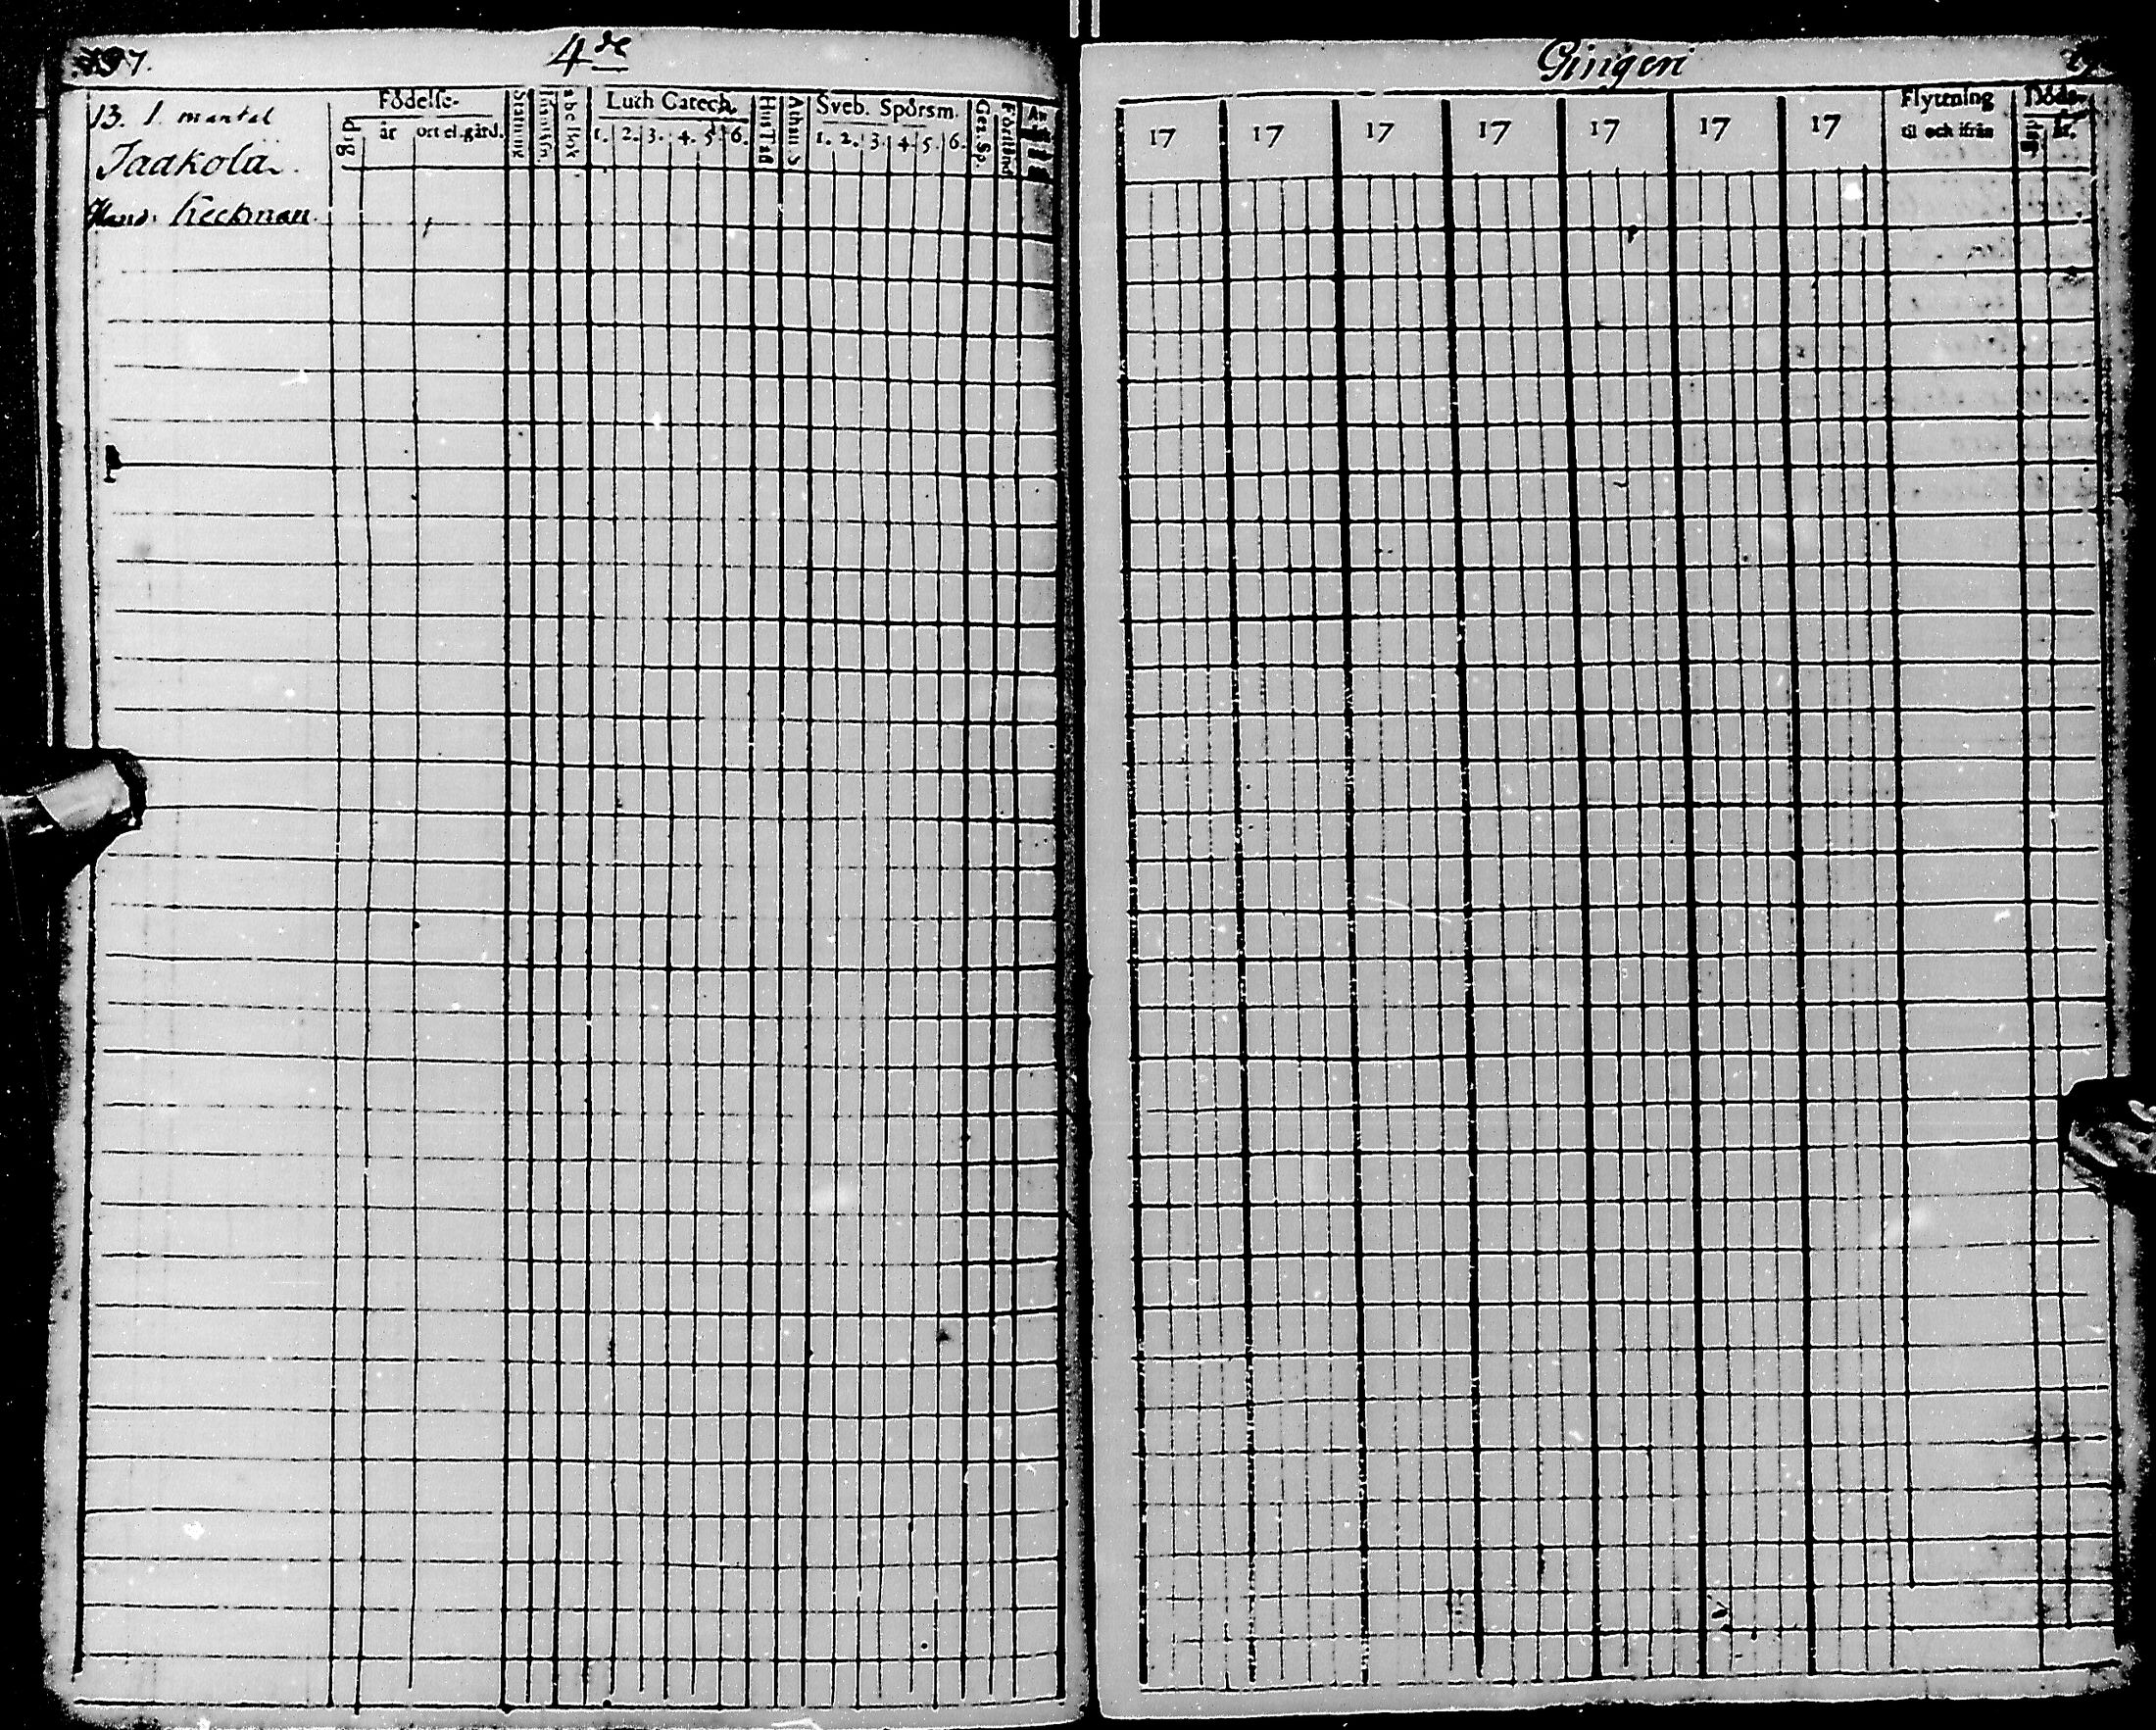 197.
4de
13. 1. mantal
Födelse-
dag
år
ort el. gård.
abc Bok
Luth Catech.
1. 2. 3. 4. 5. 6.
Hus Taf
Athan. S
Sveb. Spörsm.
1. 2. 3. 4. 5. 6.
Jaakola.
Hans Keckman
Gingeri
17 17 17 17 17 17 17
Flyttning
til och ifrån
Döds-
dag
år.